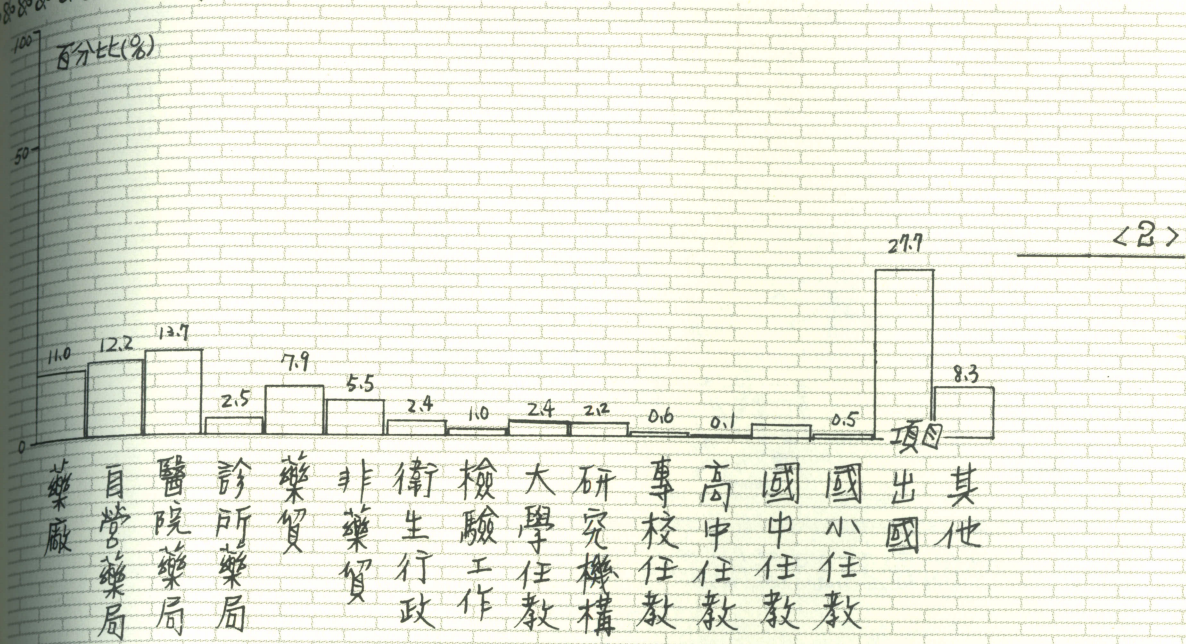 100
百分比(%)
50
0
<2>
11.0
12.2
13.7
2.5
7.9
5.5
2.4
1.0
2.4
2.2
0.6
0.1
0.5
27.7
8.3
項目
藥廠
自營藥局
醫院藥局
診所藥局
藥貿
非藥貿
衛生行政
檢驗工作
大學任教
研究機構
專校任教
高中任教
國中任教
國小任教
出國
其他